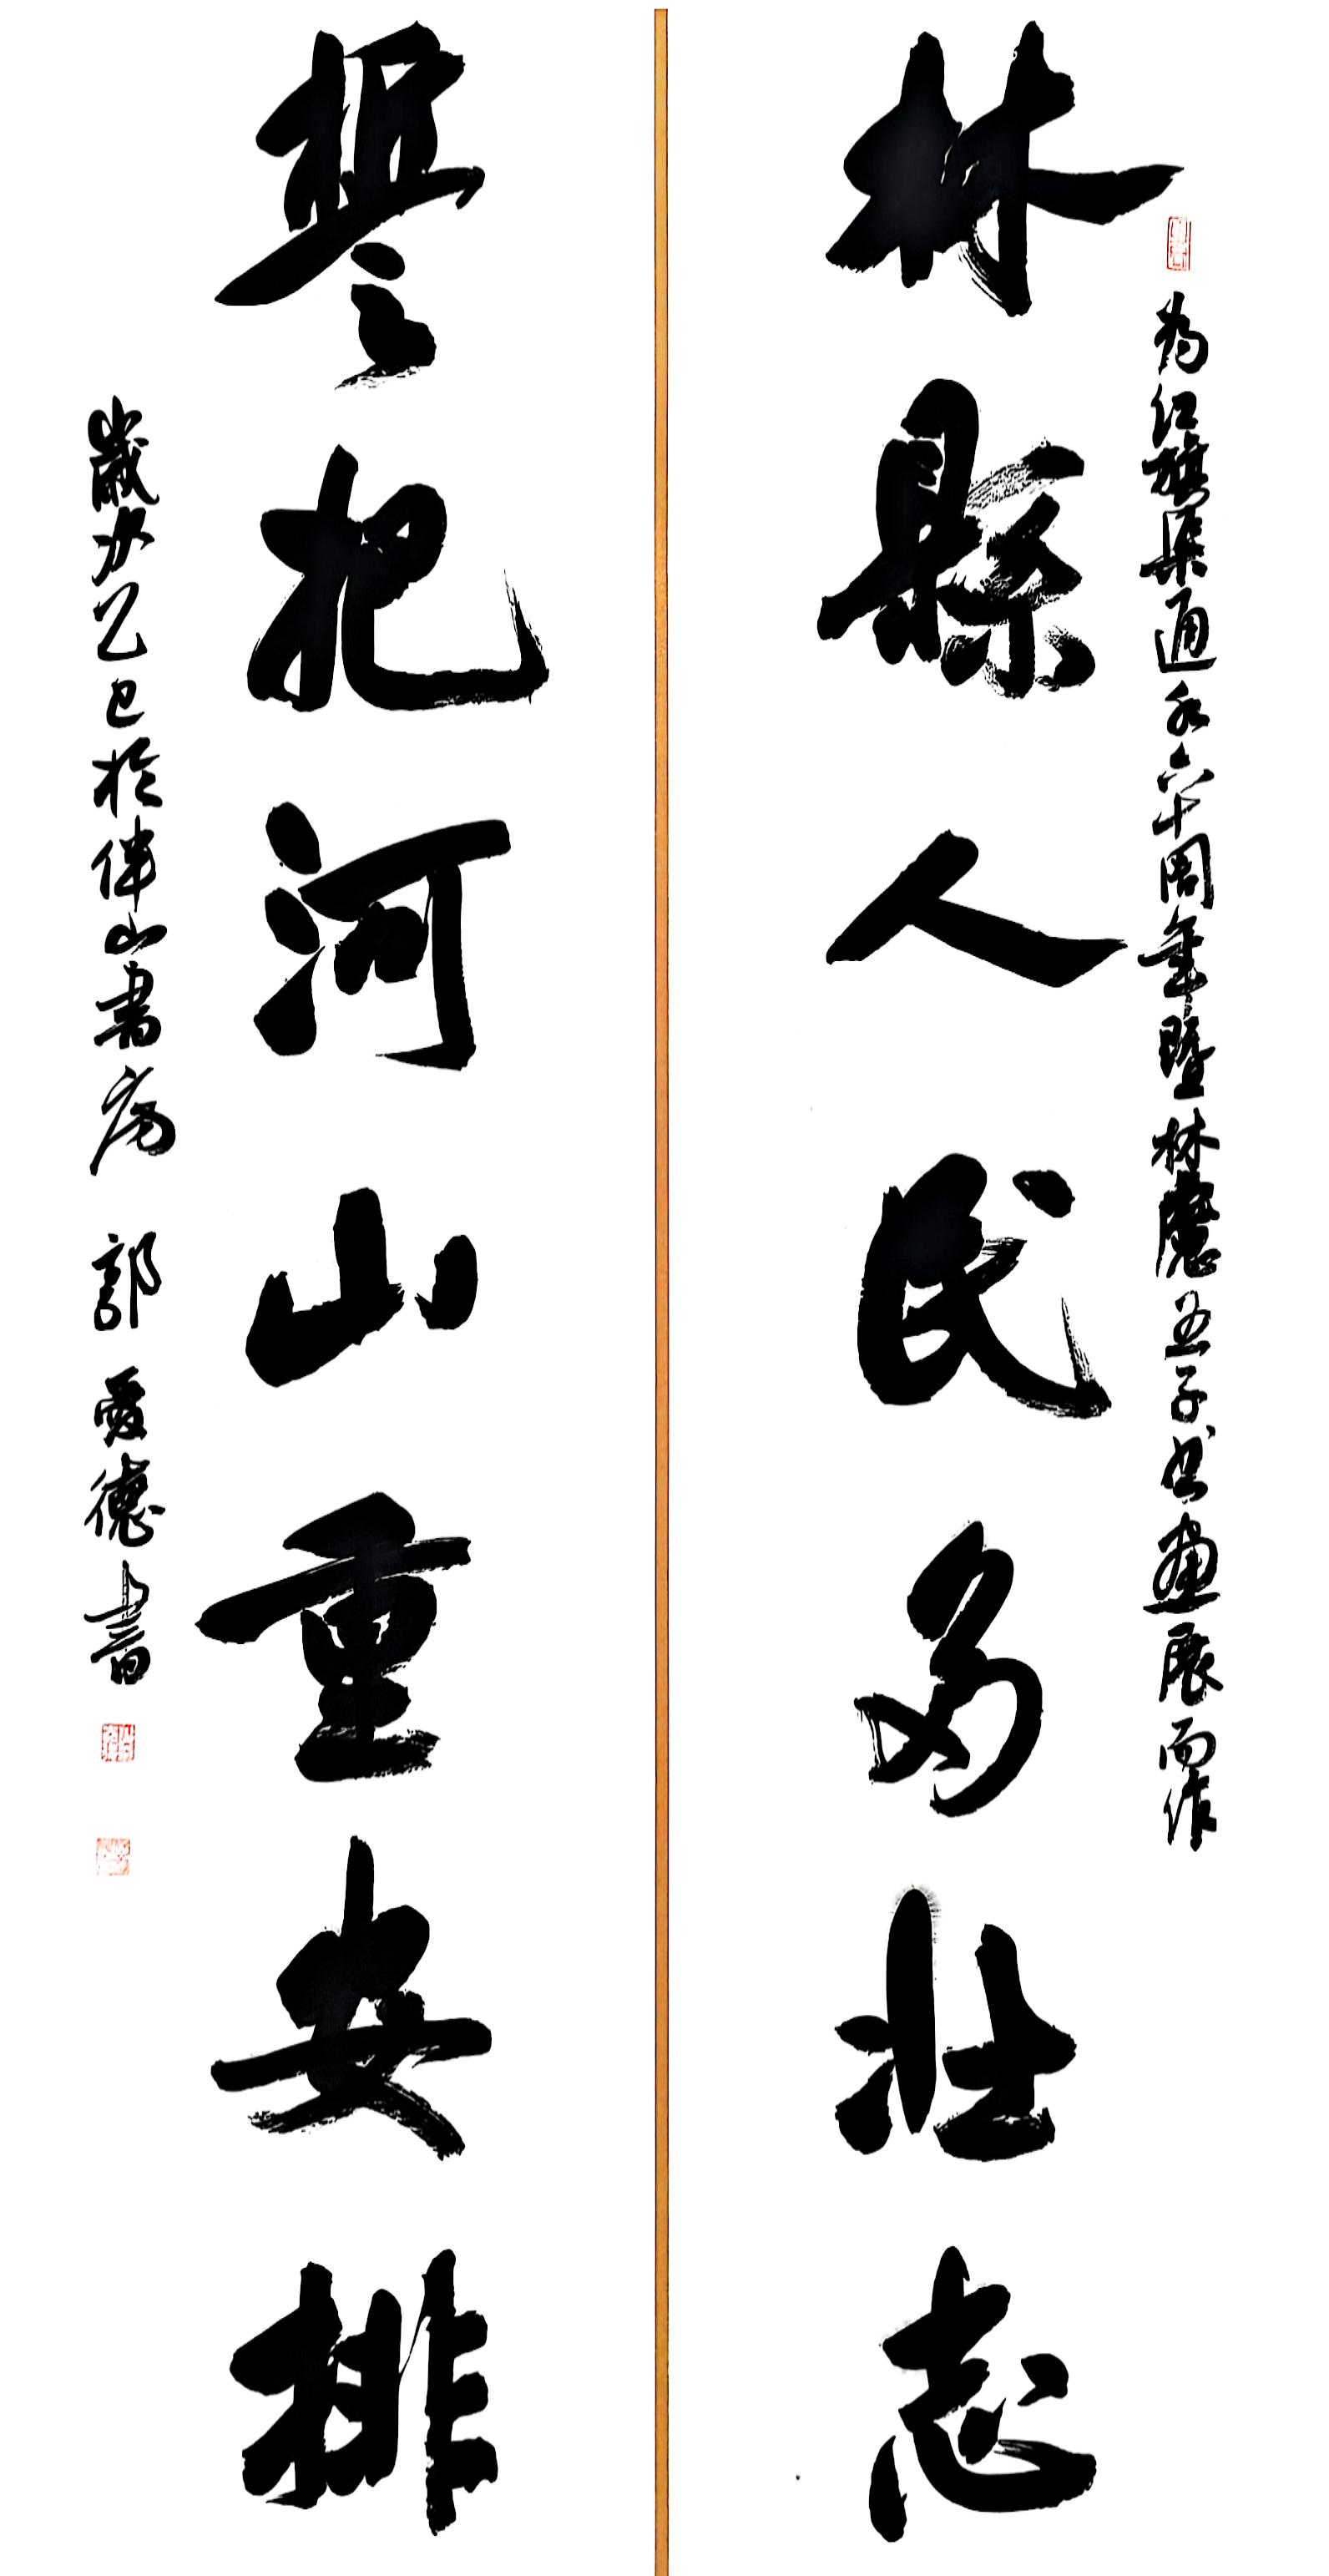 为红旗渠通水六十周年暨林虑五子书画展而作
林縣人民多壮志
誓把河山重安排
歲次乙巳於伴山書房 郭爱德書